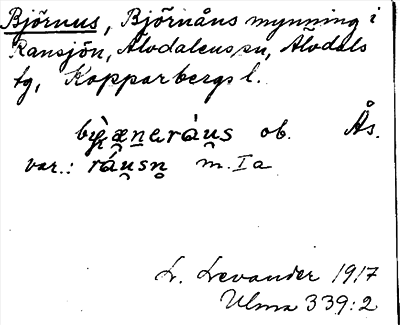 Björnus, Björnåns mynning i
Ransjön, Älvdalens sn, Älvdals
tg, Kopparbergs l.
ob. Ås.
var.: m. Ia
L. Levander 1917
Ulma 339:2